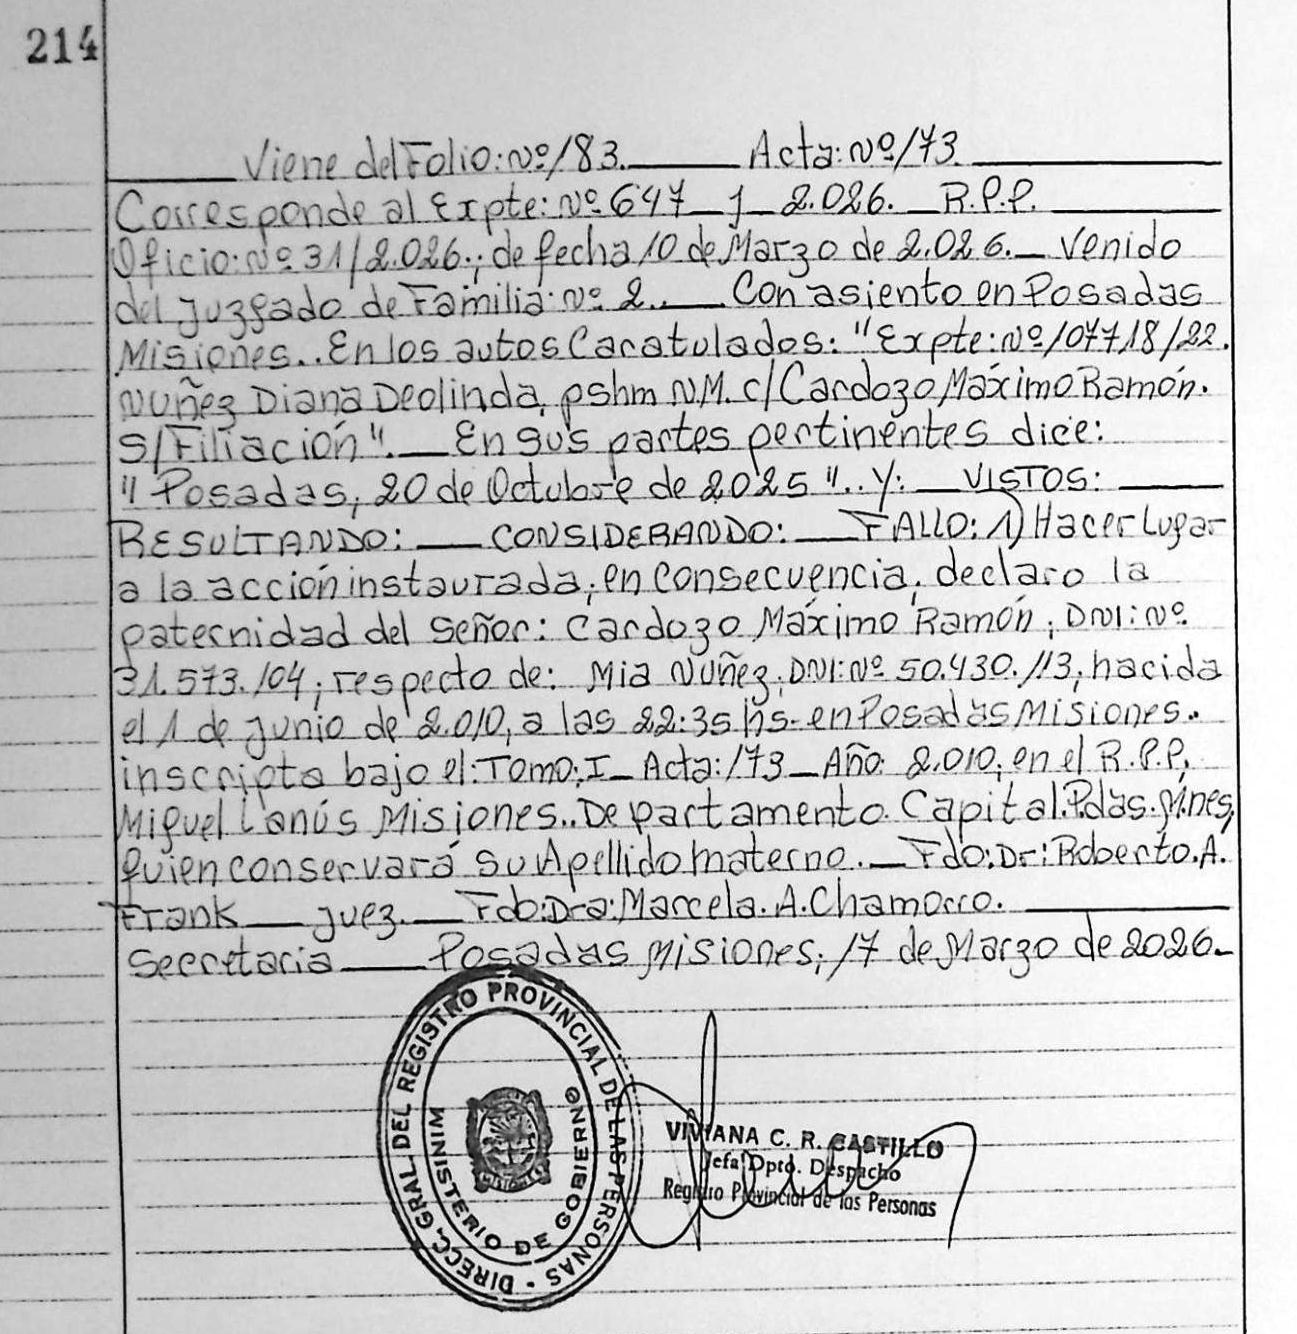 214
Viene del Folio: Nº 183. Acta: Nº 173
Corresponde al Expte: Nº 647 J 2.026. R.P.P.
Oficio: Nº 31/2.026.; de fecha 10 de Marzo de 2.026. Venido
del Juzgado de Familia: Nº 2.. Con asiento en Posadas
Misiones.. En los autos Caratulados: "Expte: Nº 107718/22.
NUÑez Diana Deolinda, pshm N.M. c/ Cardozo Máximo Ramón.
S/Filiación". En sus partes pertinentes dice:
"Posadas, 20 de Octubre de 2025".. Y: VISTOS:
RESULTANDO: CONSIDERANDO: FALLO: 1) Hacer Lugar
a la acción instaurada; en consecuencia, declaro la
paternidad del Señor: Cardozo Máximo Ramón, DNI: Nº
31.573.104; respecto de: Mia Nuñez, DNI: Nº 50.430.113, nacida
el 1 de Junio de 2.010, a las 22:35 hs. en Posadas Misiones.
inscripta bajo el: Tomo: I Acta: 173 Año: 2.010, en el R.P.P.
Miguel Lanús Misiones.. Departamento Capital. Pdas. Mnes,
quien conservará su Apellido materno. Fdo: Dr: Roberto. A.
Frank Juez. Fdo: Dra: Marcela. A. Chamorro.
Secretaria Posadas Misiones; 17 de Marzo de 2026.
DIRECC. GRAL. DEL REGISTRO PROVINCIAL DE LAS PERSONAS
MINISTERIO DE GOBIERNO
MISIONES
VIVIANA C. R. CASTILLO
Jefa Dpto. Despacho
Registro Provincial de las Personas